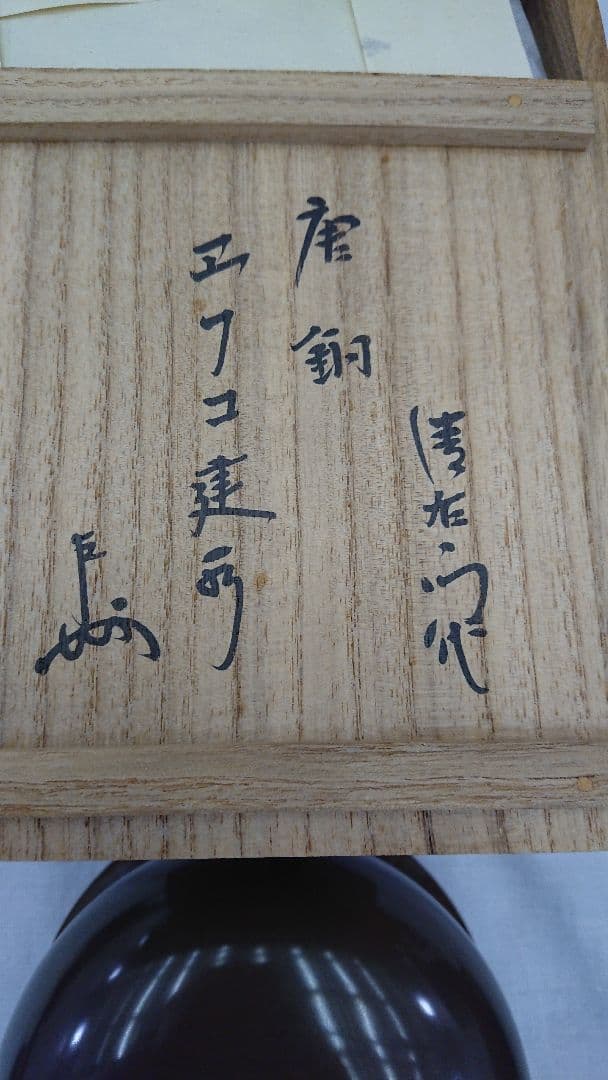 清右衛門代
唐銅
ヱフコ建水